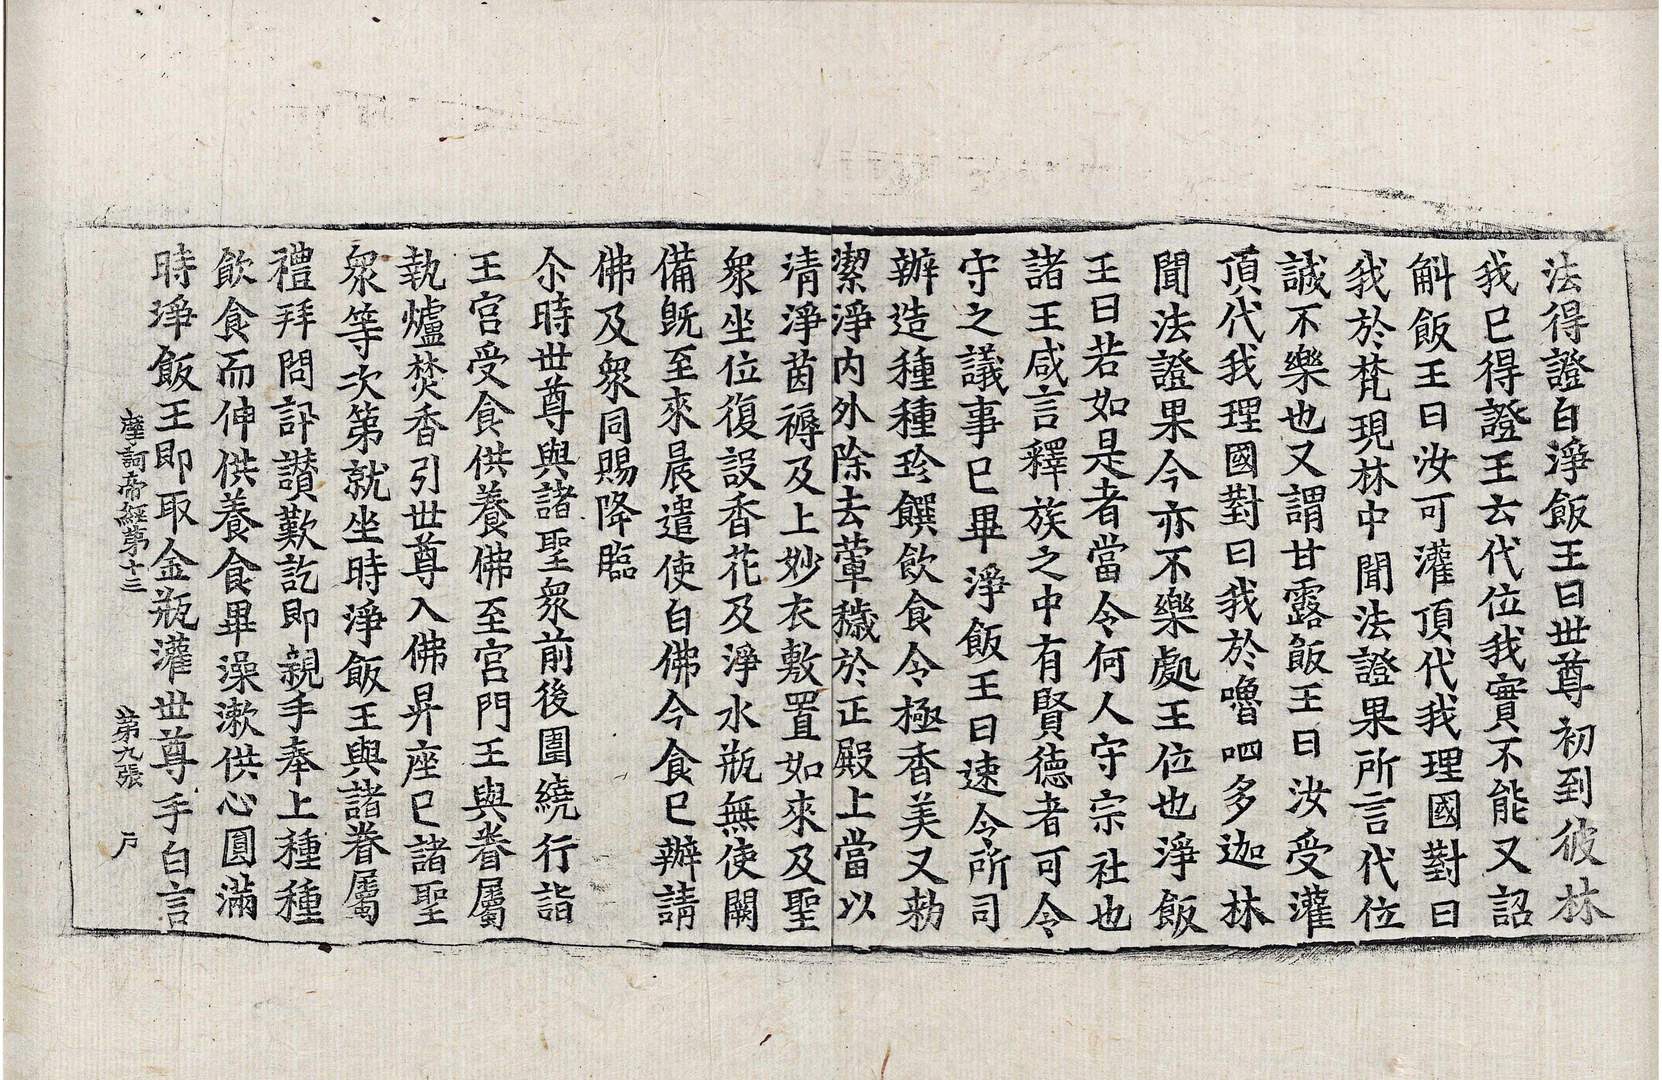 法得證白淨飯王曰世尊初到彼林
我已得證王云代位我實不能又詔
斛飯王曰汝可灌頂代我理國對曰
我於梵現林中聞法證果所言代位
誠不樂也又謂甘露飯王曰汝受灌
頂代我理國對曰我於嚕呬多迦林
聞法證果今亦不樂處王位也淨飯
王曰若如是者當令何人守宗社也
諸王咸言釋族之中有賢德者可令
守之議事已畢淨飯王曰速令所司
辦造種種珍饌飲食令極香美又勑
潔淨內外除去葷穢於正殿上當以
清淨茵褥及上妙衣敷置如來及聖
衆坐位復設香花及淨水瓶無使闕
備旣至來晨遣使白佛今食已辦請
佛及衆同賜降臨
尒時世尊與諸聖衆前後圍繞行詣
王宮受食供養佛至宮門王與眷屬
執爐焚香引世尊入佛昇座已諸聖
衆等次第就坐時淨飯王與諸眷屬
禮拜問訊讃歎訖即親手奉上種種
飲食而伸供養食畢澡漱供心圓滿
時淨飯王即取金瓶灌世尊手白言
摩訶帝經第十三 第九張 戶